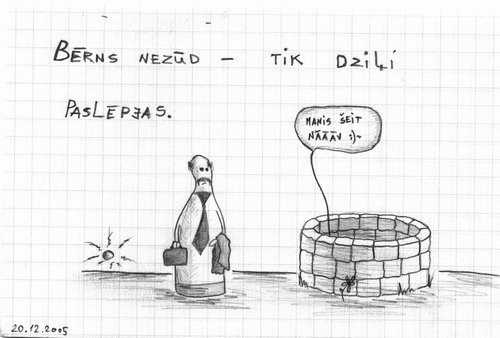 BĒRNS NEZŪD – TIK DZIĻI
PASLĒPJAS.
MANIS ŠEIT
NĀĀĀV ;)~
20.12.2005